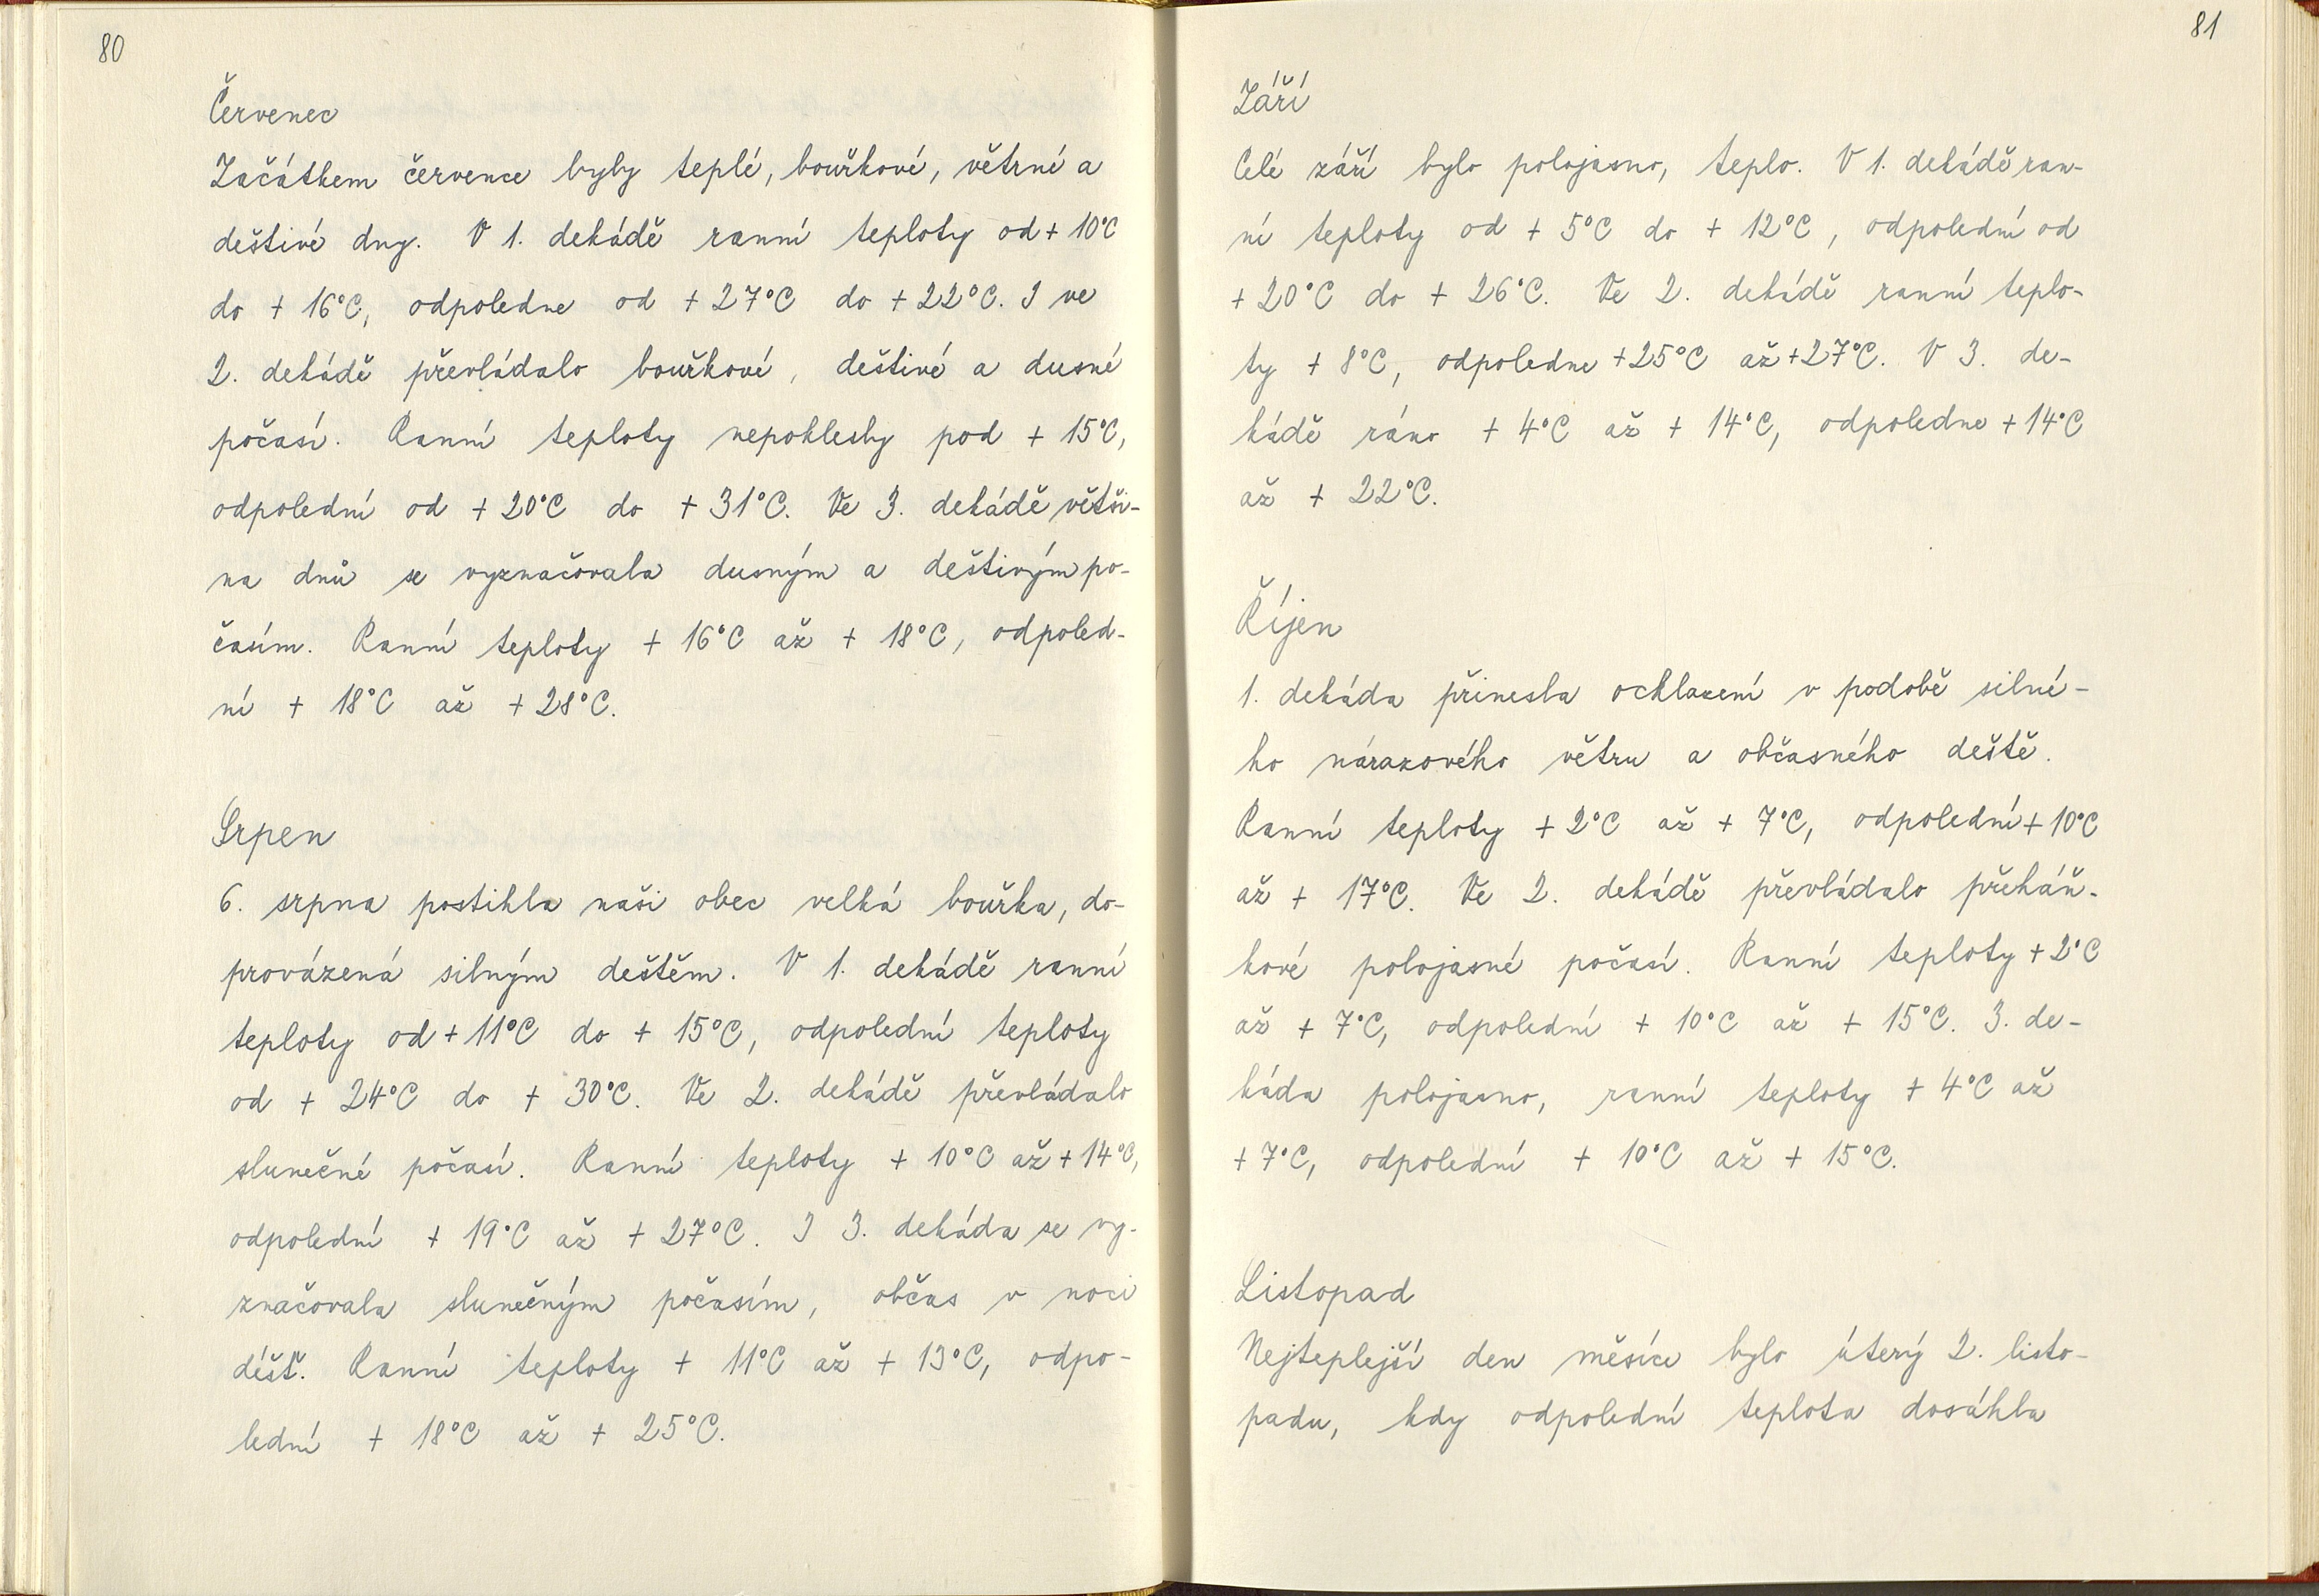 80
Červenec
Začátkem července byly teplé, bouřkové, větrné a
deštivé dny. V 1. dekádě ranní teploty od + 10°C
do + 16°C, odpoledne od + 27°C do + 22°C. I ve
2. dekádě převládalo bouřkové, deštivé a dusné
počasí. Ranní teploty nepoklesly pod + 15°C,
odpolední od + 20°C do + 31°C. Ve 3. dekádě větši-
na dnů se vyznačovala dusným a deštivým po-
časím. Ranní teploty + 16°C až + 18°C, odpoled-
ní + 18°C až + 28°C.
Srpen
6. srpna postihla naši obec velká bouřka, do-
provázená silným deštěm. V 1. dekádě ranní
teploty od + 11°C do + 15°C, odpolední teploty
od + 24°C do + 30°C. Ve 2. dekádě převládalo
slunečné počasí. Ranní teploty + 10°C až + 14°C,
odpolední + 19°C až + 27°C. I 3. dekáda se vy-
značovala slunečným počasím, občas v noci
déšť. Ranní teploty + 11°C až + 13°C, odpo-
lední + 18°C až + 25°C.
81
Září
Celé září bylo polojasno, teplo. V 1. dekádě ran-
ní teploty od + 5°C do + 12°C, odpolední od
+ 20°C do + 26°C. Ve 2. dekádě ranní teplo-
ty + 8°C, odpoledne +25°C až +27°C. V 3. de-
kádě ráno + 4°C až + 14°C, odpoledne + 14°C
až + 22°C.
Říjen
1. dekáda přinesla ochlazení v podobě silné-
ho nárazového větru a občasného deště.
Ranní teploty + 2°C až + 7°C, odpolední + 10°C
až + 17°C. Ve 2. dekádě převládalo přeháň-
kové polojasné počasí. Ranní teploty + 2°C
až + 7°C, odpolední + 10°C až + 15°C. 3. de-
káda polojasno, ranní teploty + 4°C až
+ 7°C, odpolední + 10°C až + 15°C.
Listopad
Nejteplejší den měsíce bylo úterý 2. listo-
padu, kdy odpolední teplota dosáhla